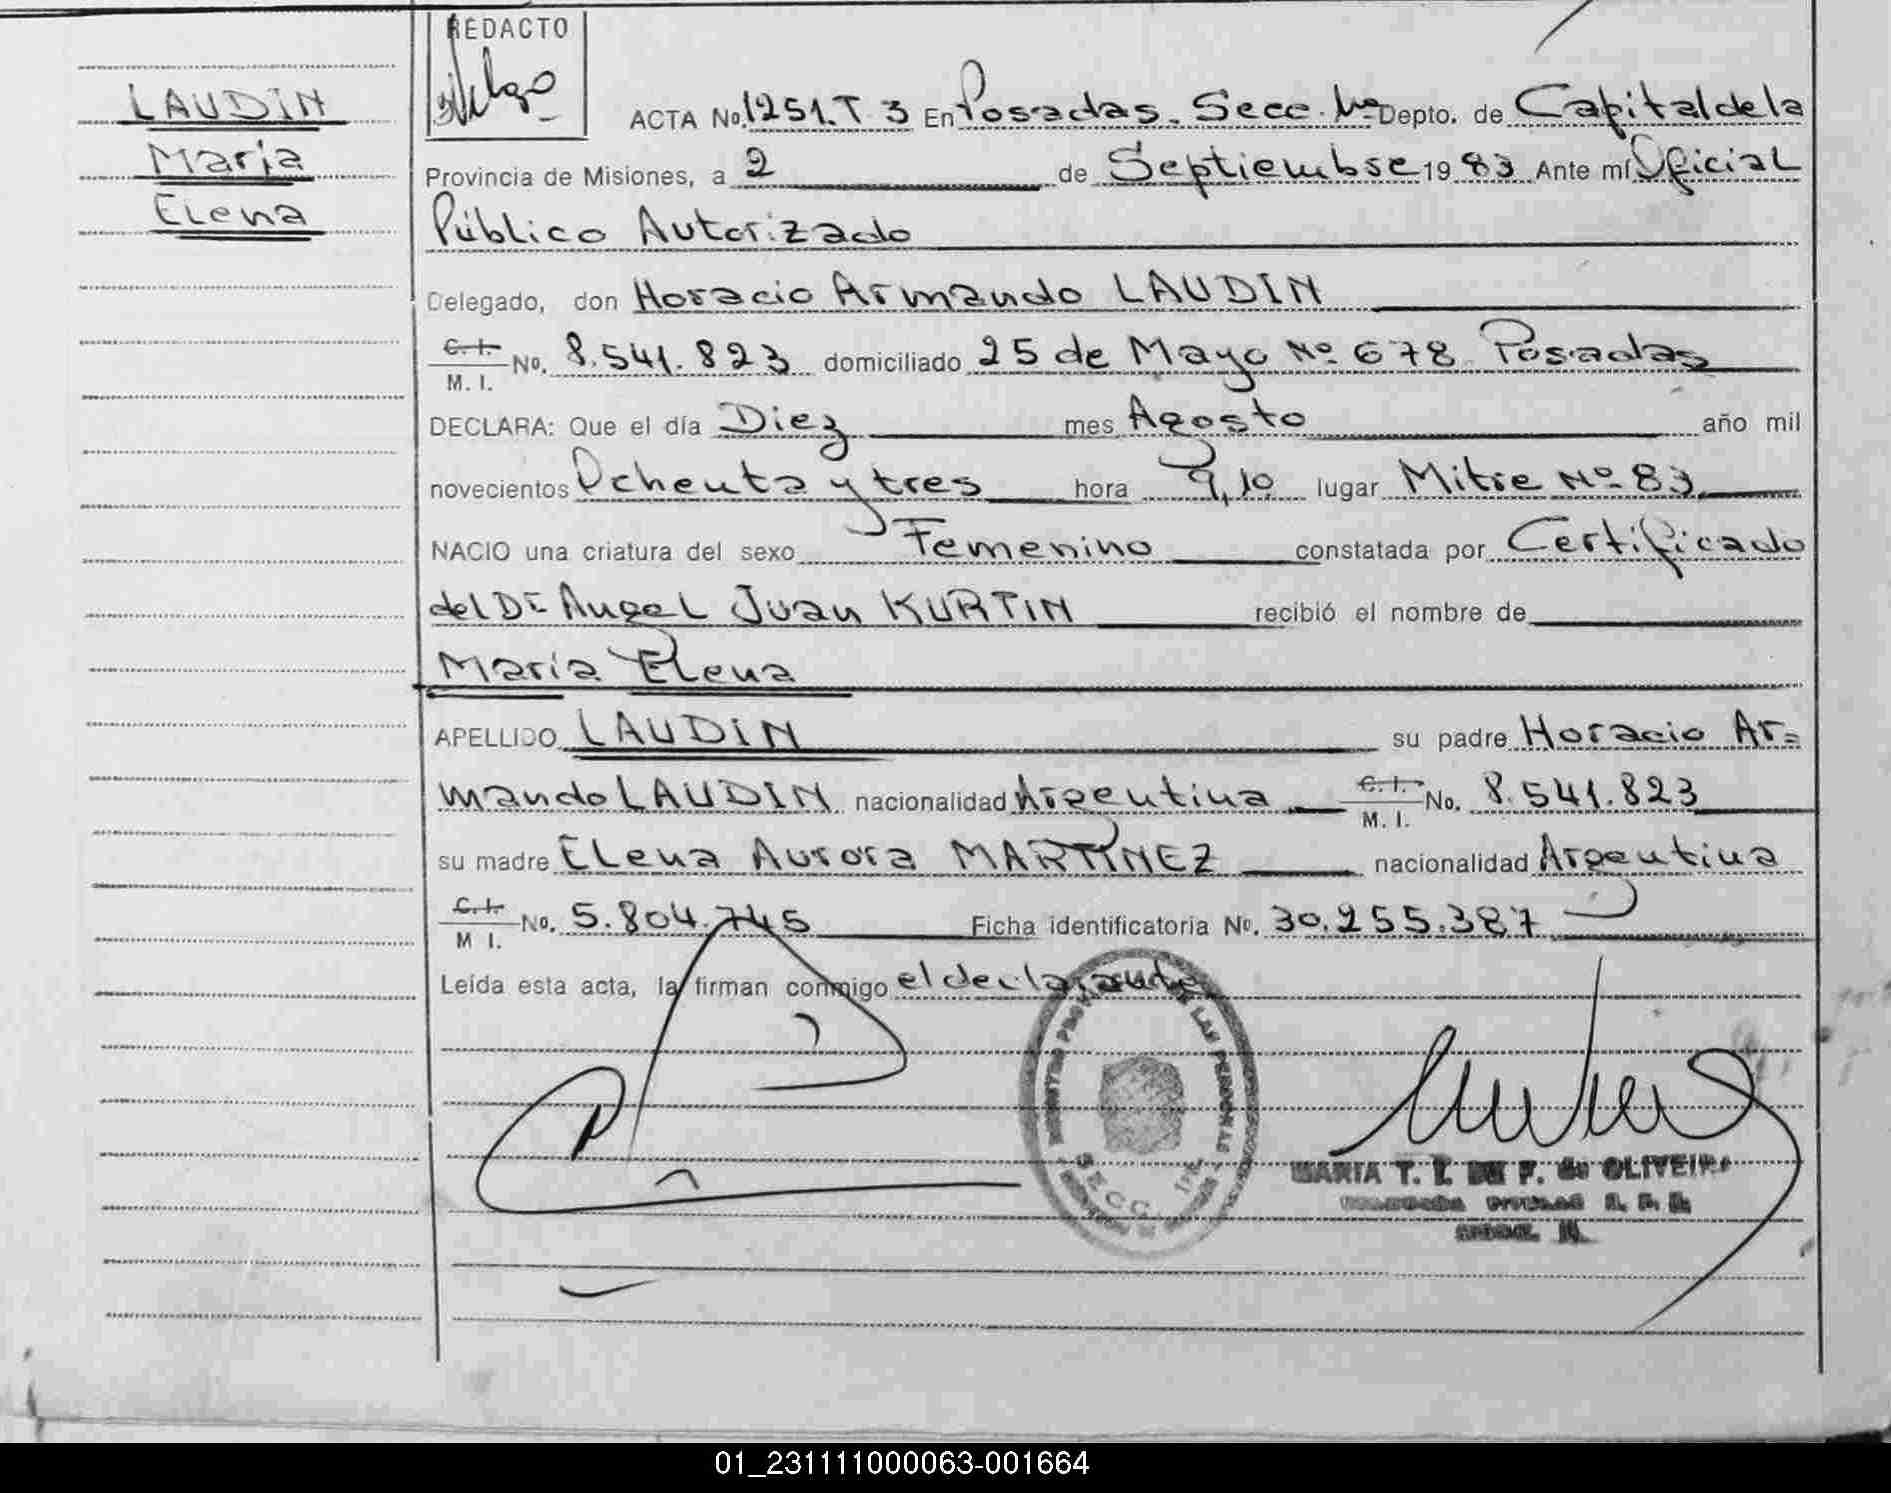 REDACTO
LAUDIN
María
Elena
ACTA No. 1251. T 3 En Posadas. Secc. 1ra Depto. de Capital de la
Provincia de Misiones, a 2 de Septiembre 1983 Ante mí Oficial
Público Autorizado
Delegado, don Horacio Armando LAUDIN
C. I. M. I. No. 8.541.823 domiciliado 25 de Mayo Nº 678 Posadas
DECLARA: Que el día Diez mes Agosto año mil
novecientos Ochenta y tres hora 9,10 lugar Mitre Nº 83
NACIO una criatura del sexo Femenino constatada por Certificado
del Dr Angel Juan KURTIN recibió el nombre de
María Elena
APELLIDO LAUDIN su padre Horacio Ar=
mando LAUDIN nacionalidad Argentina C. I. M. I. No. 8.541.823
su madre Elena Aurora MARTINEZ nacionalidad Argentina
C. I. M I. No. 5.804.745 Ficha identificatoria No. 30.255.387
Leída esta acta, la firman conmigo el declarante
LAS PERSONAS
SECC. 1ra
MARIA T. I. DE F. de OLIVEIRA
01_231111000063-001664